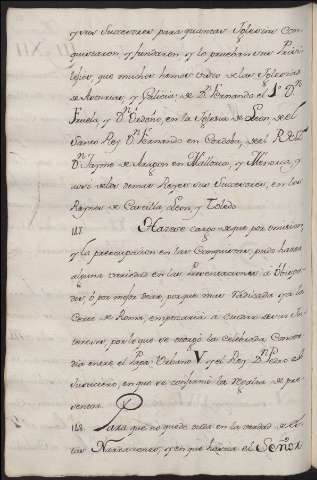 y sus Succesores para quantas Iglesias Con-
quistaron, y fundaron y lo prueban sus Privi-
lejios, que muchos hemos visto de las Iglesias
de Asturias, y Galicia de Dn Fernando el 1º Dn
Fruela, y Dn Ordoño, en la Iglesia de Leon, de el
Santo Rey Dn Fernando en Cordoba, de el R.
Dn Jayme de Aragon en Mallorca, y Menorca, y
de los demas Reyes sus Succesores, en los
Reynos de Castilla, Leon, y Toledo
Hazese cargo de que por omision,
y la preocupacion en las Conquistas, pudo haber
alguna variedad en las Presentaciones a Obispa-
dos, ó por mejor decir, porque mas radicada ya la
Corte de Roma, empezaria a cuidar de su In-
teres, por lo que se otorgó la celebrada Concor-
dia entre el Papa Urbano V y el Rey Dn Pedro el
Justiciero, en que se confirmó la Regalia de pre-
sentar.
Para que no quede duda en la verdad de es-
tas Narraciones, y en que hacia el Señor